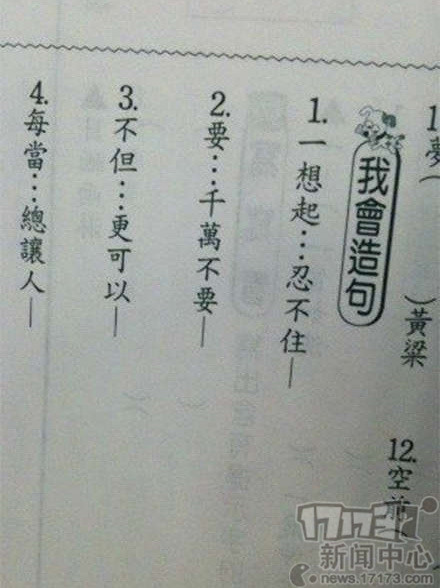 1.夢(　)黃粱
12.空前(
我會造句
1.一想起…忍不住—
2.要…千萬不要—
3.不但…更可以—
4.每當…總讓人—
17173
新闻中心
news.17173.com